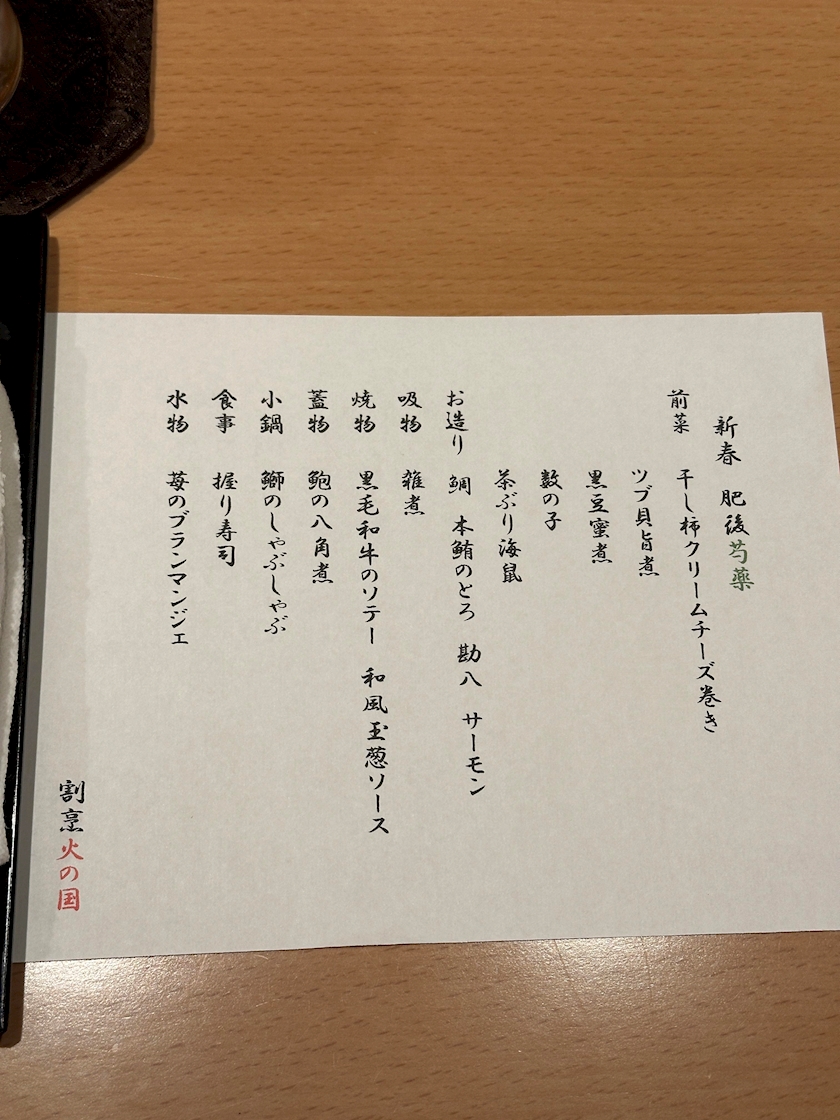 新春 肥後芍薬
前菜 干し柿クリームチーズ巻き
ツブ貝旨煮
黒豆蜜煮
数の子
茶ぶり海鼠
お造り 鯛 本鮪のとろ 勘八 サーモン
吸物 雑煮
焼物 黒毛和牛のソテー 和風玉葱ソース
蓋物 鮑の八角煮
小鍋 鰤のしゃぶしゃぶ
食事 握り寿司
水物 苺のブランマンジェ
割烹火の国